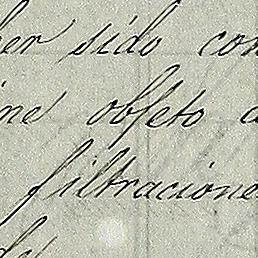 ber sido con
ine objeto a
filtracione
de